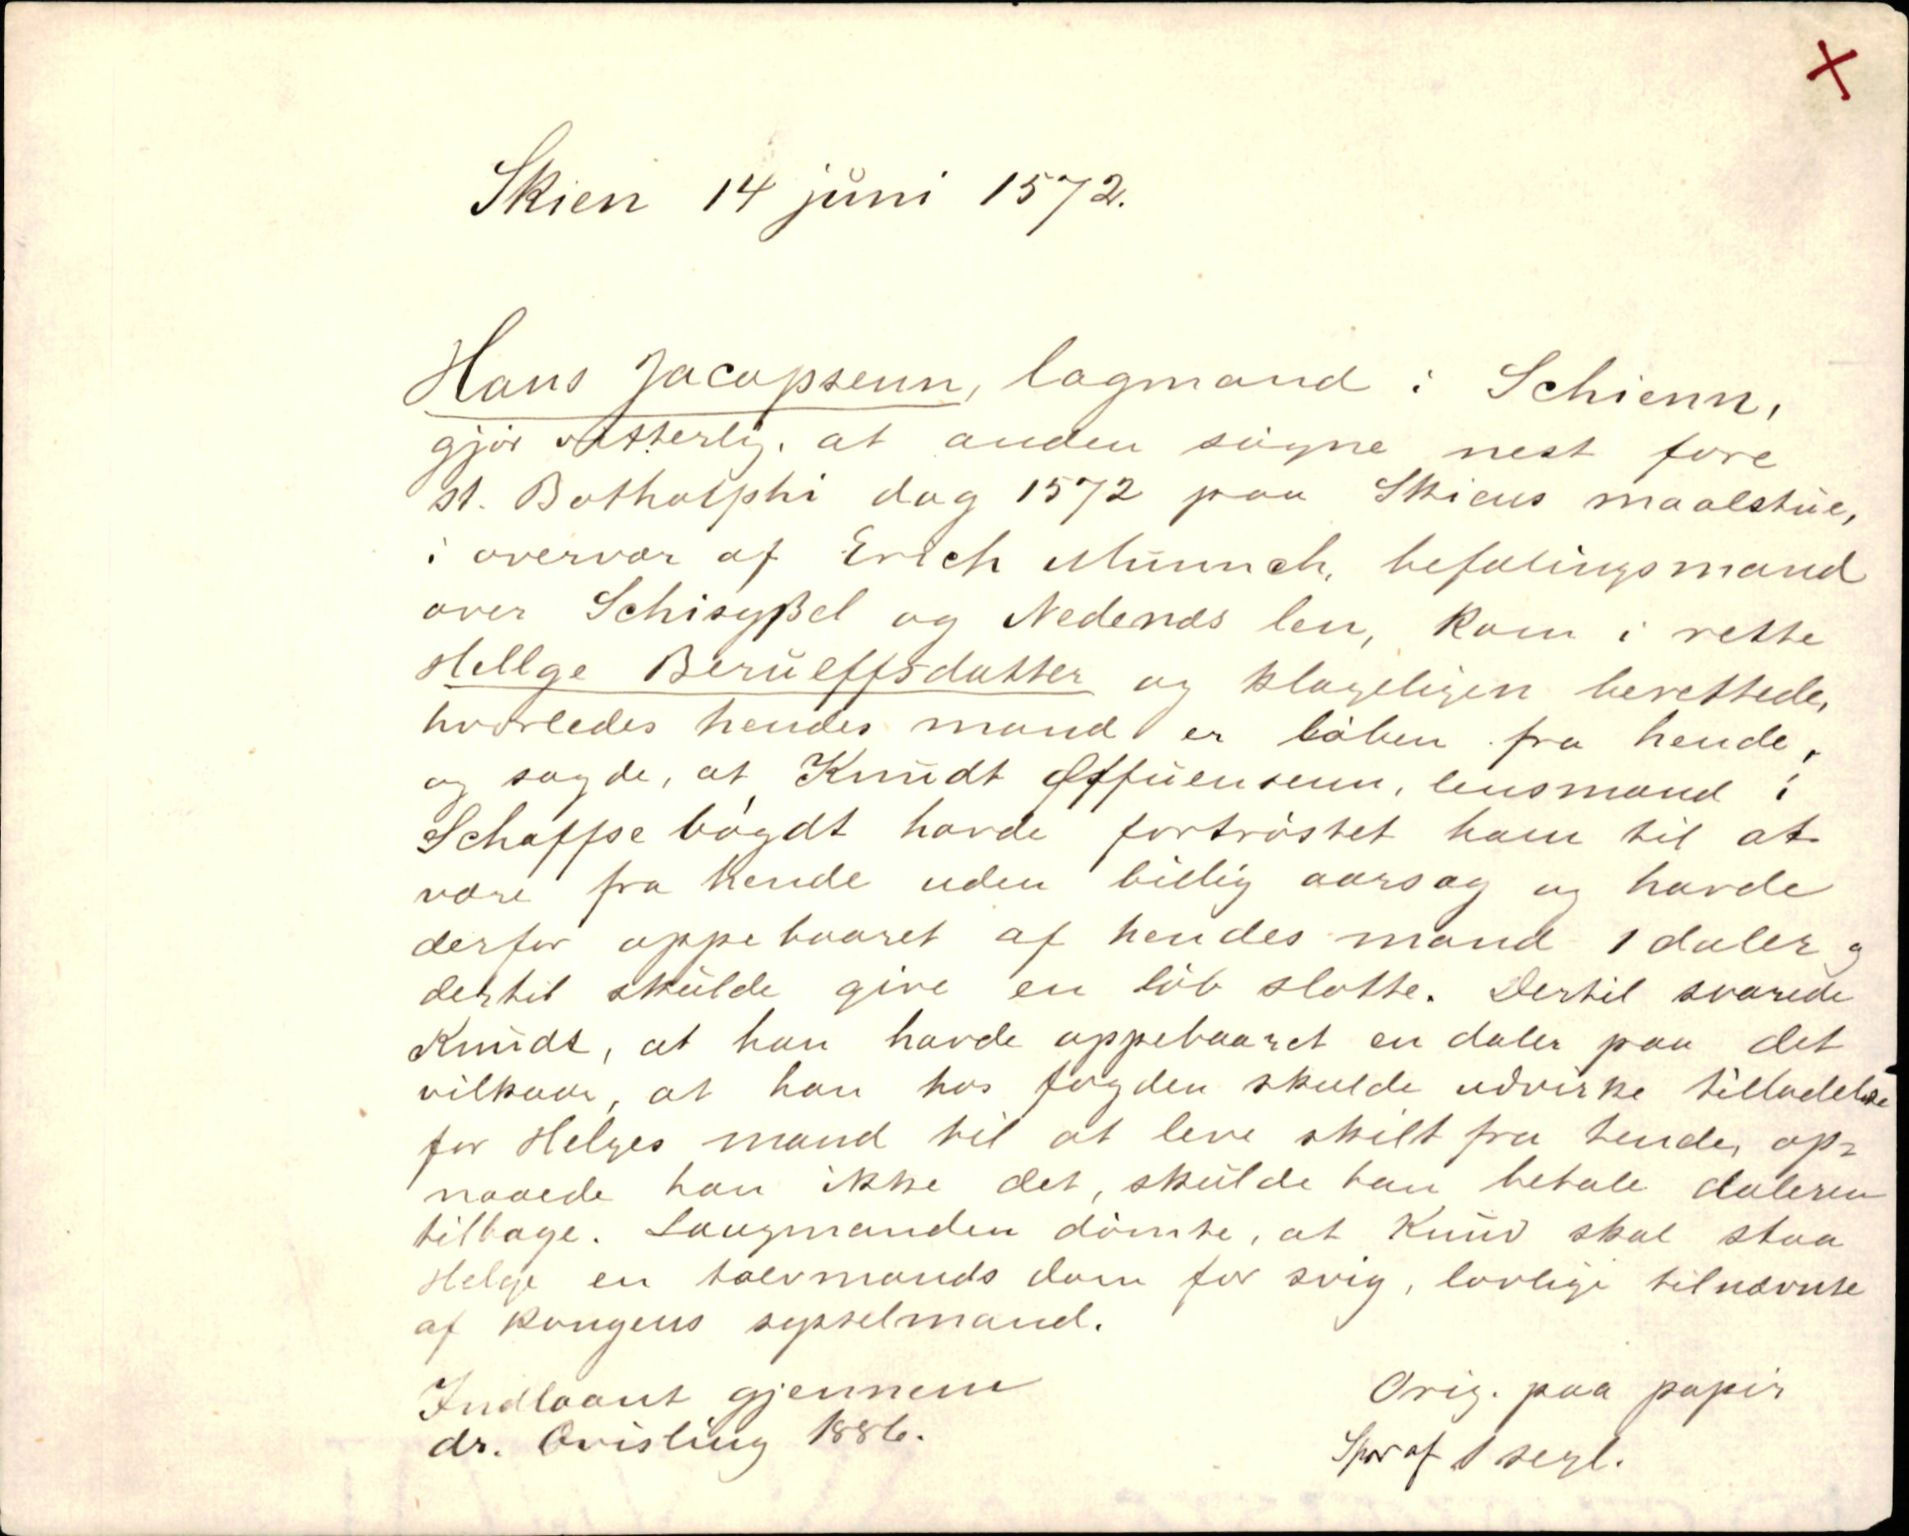 Skien 14 juni 1572.
Hans Jacopsenn, lagmand i Schienn,
gjör vitterlig, at anden sögne nest fore
st. Botholphi dag 1572 paa Skiens maalstue,
i overvær af Erich Munnch, befalingsmand
over Schisyßel og Nedenæs len, kom i rette
Hellge Berulffsdatter og klageligen berettede,
hvorledes hendes mand er löben fra hende,
og sagde, at Knudt Øffuensenn, lensmand i
Schaffse bögdt havde fortröstet ham til at
være fra hende uden billig aarsag og havde
derfor oppebaaret af hendes mand 1 daler og
dertil skulde give en löb slotte. Dertil svarede
Knudt, at han havde oppebaaret en daler paa det
vilkaar, at han hos fogden skulde udvirke tilladelse
for Helges mand til at leve skilt fra hende, op-
naaede han ikke det, skulde han betale daleren
tilbage. Laugmanden dömte, at Knud skal staa
Helge en tolvmands dom for svig, lovlige tilnævnte
af kongens sysselmand.
Indlaant gjennem
dr. Qvisling 1886.
Orig. paa papir
Spor af 1 segl.